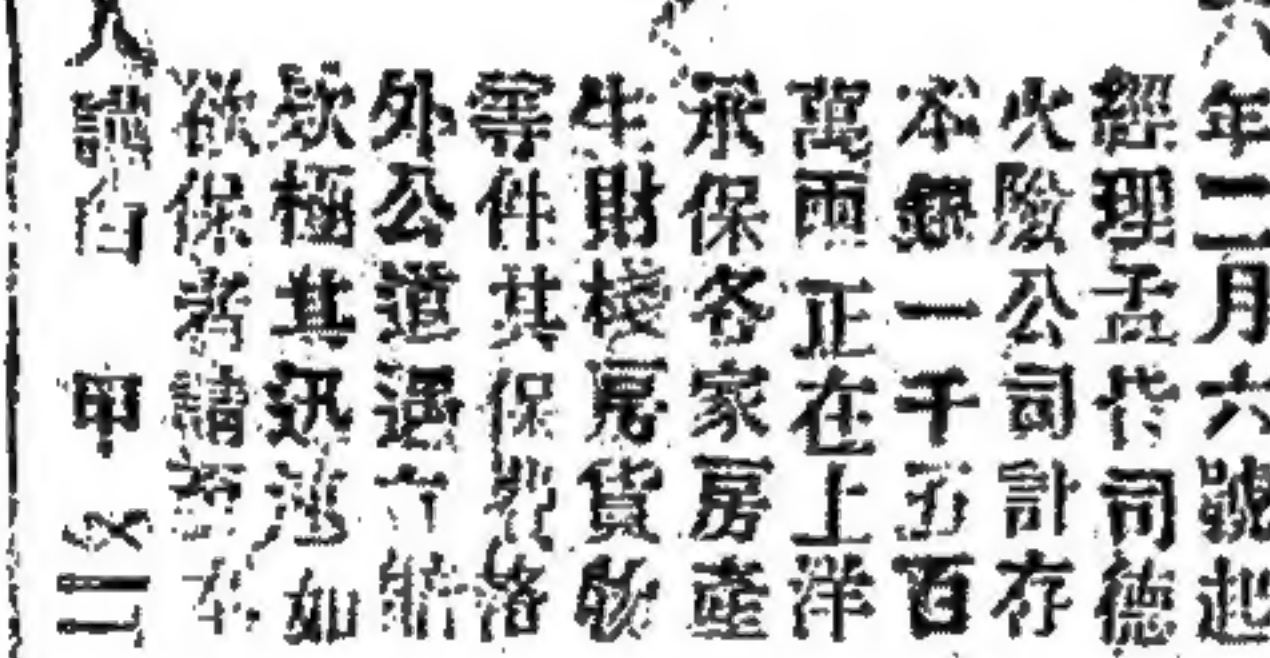 六年二月六號起
經理孟代司德
火險公司計存
本銀一千五百
萬兩正在上洋
承保各家房產
生財棧房貨物
等件其保費格
外公道遇
欵極其迅速如
欲保者請至本
人謹白 甲 二